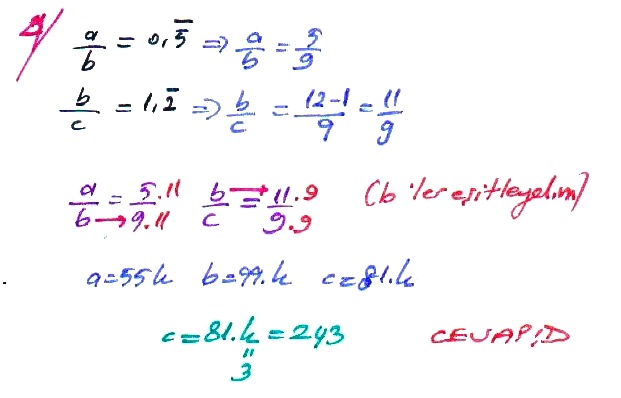 3/ a/b = 0,5̅ => a/b = 5/9
b/c = 1,2̅ => b/c = 12-1/9 = 11/9
a/b → = 5.11/9.11 b/c → = 11.9/9.9 (b 'ler eşitleyelim)
a=55k b=99.k c=81.k
c=81.k=243
"
3
CEVAP:D